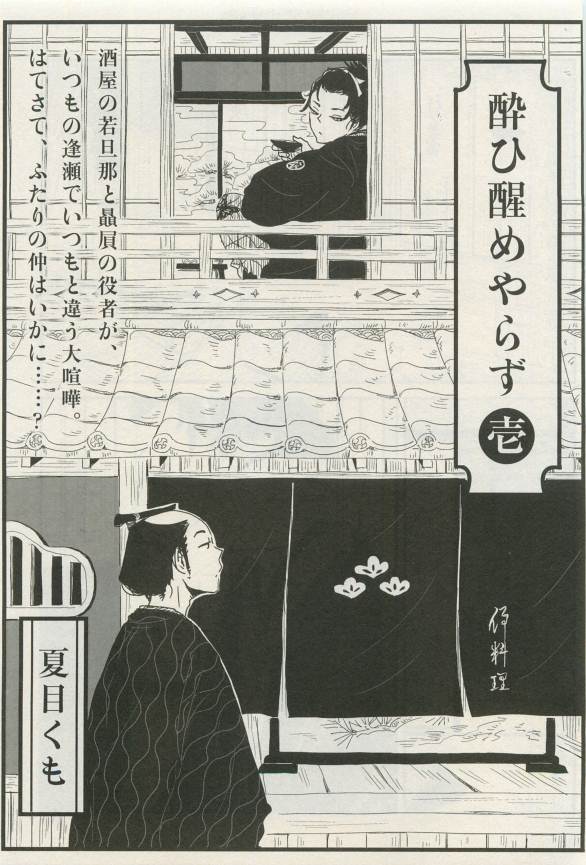 酔ひ醒めやらず 壱
酒屋の若旦那と贔屓の役者が、
いつもの逢瀬でいつもと違う大喧嘩。
はてさて、ふたりの仲はいかに……?
料理
夏目くも